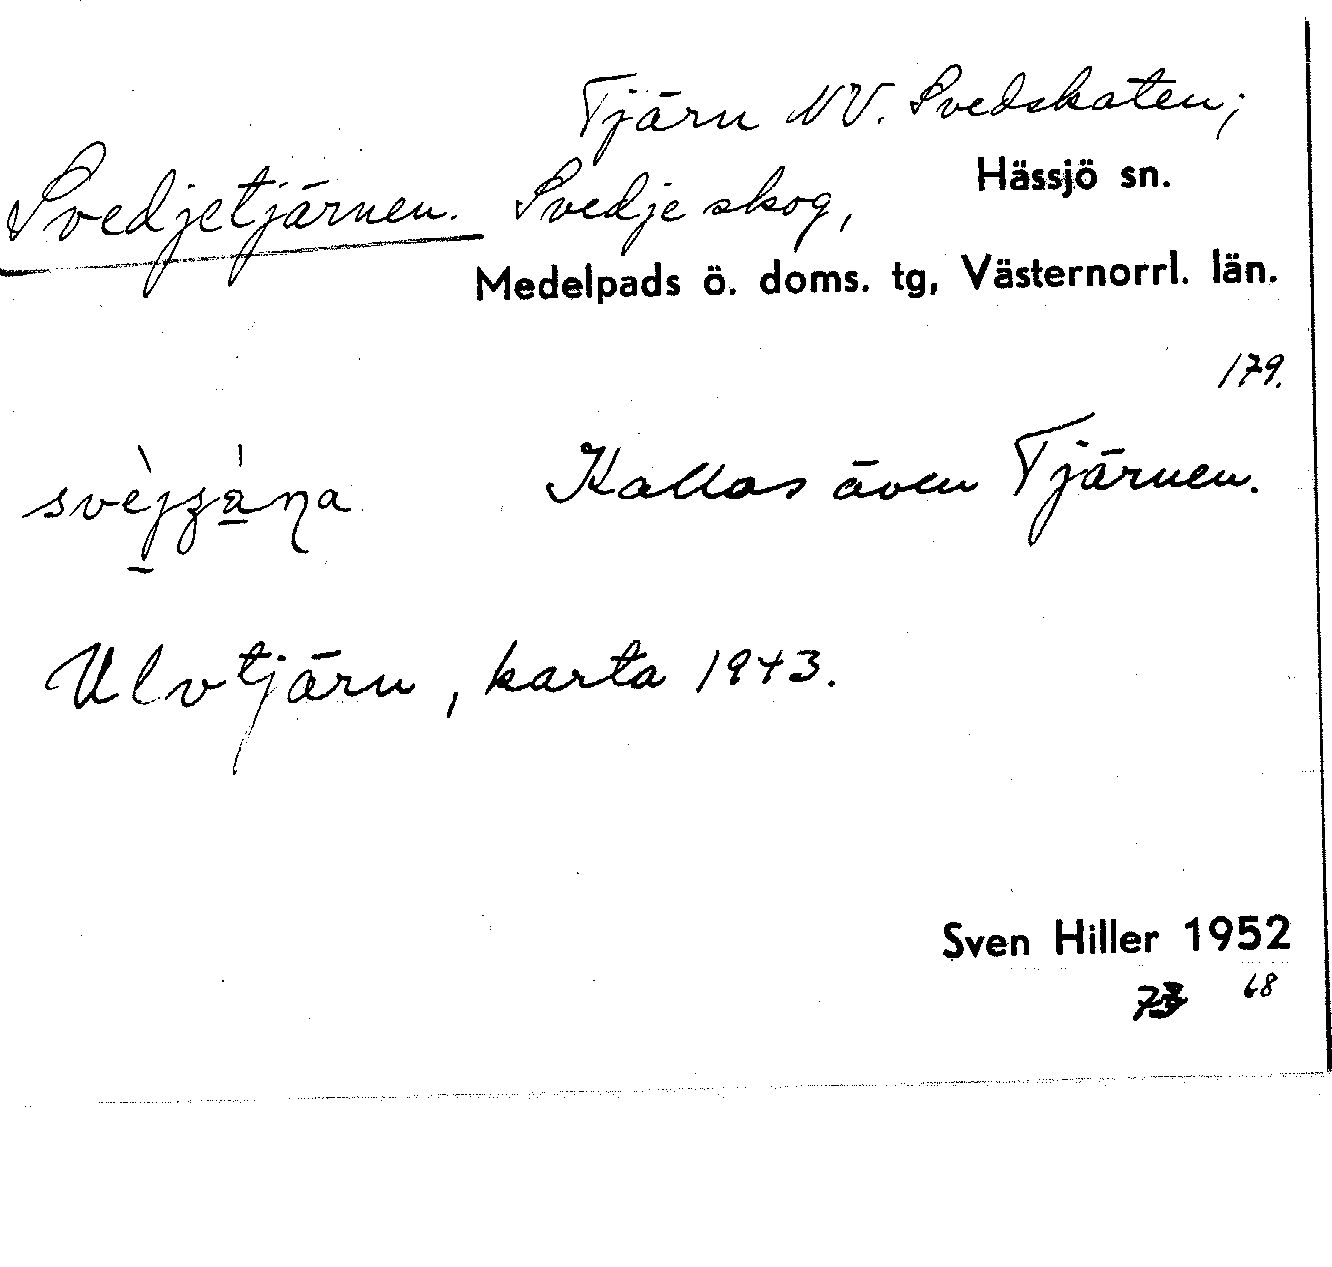 Tjärn NV. Svedskaten;
Svedjetjärnen. Svedje skog,
Hässjö sn.
Medelpads ö. doms. tg, Västernorrl. län.
179.
Kallas även Tjärnen.
Ulvtjärn, karta 1943.
Sven Hiller 1952
68